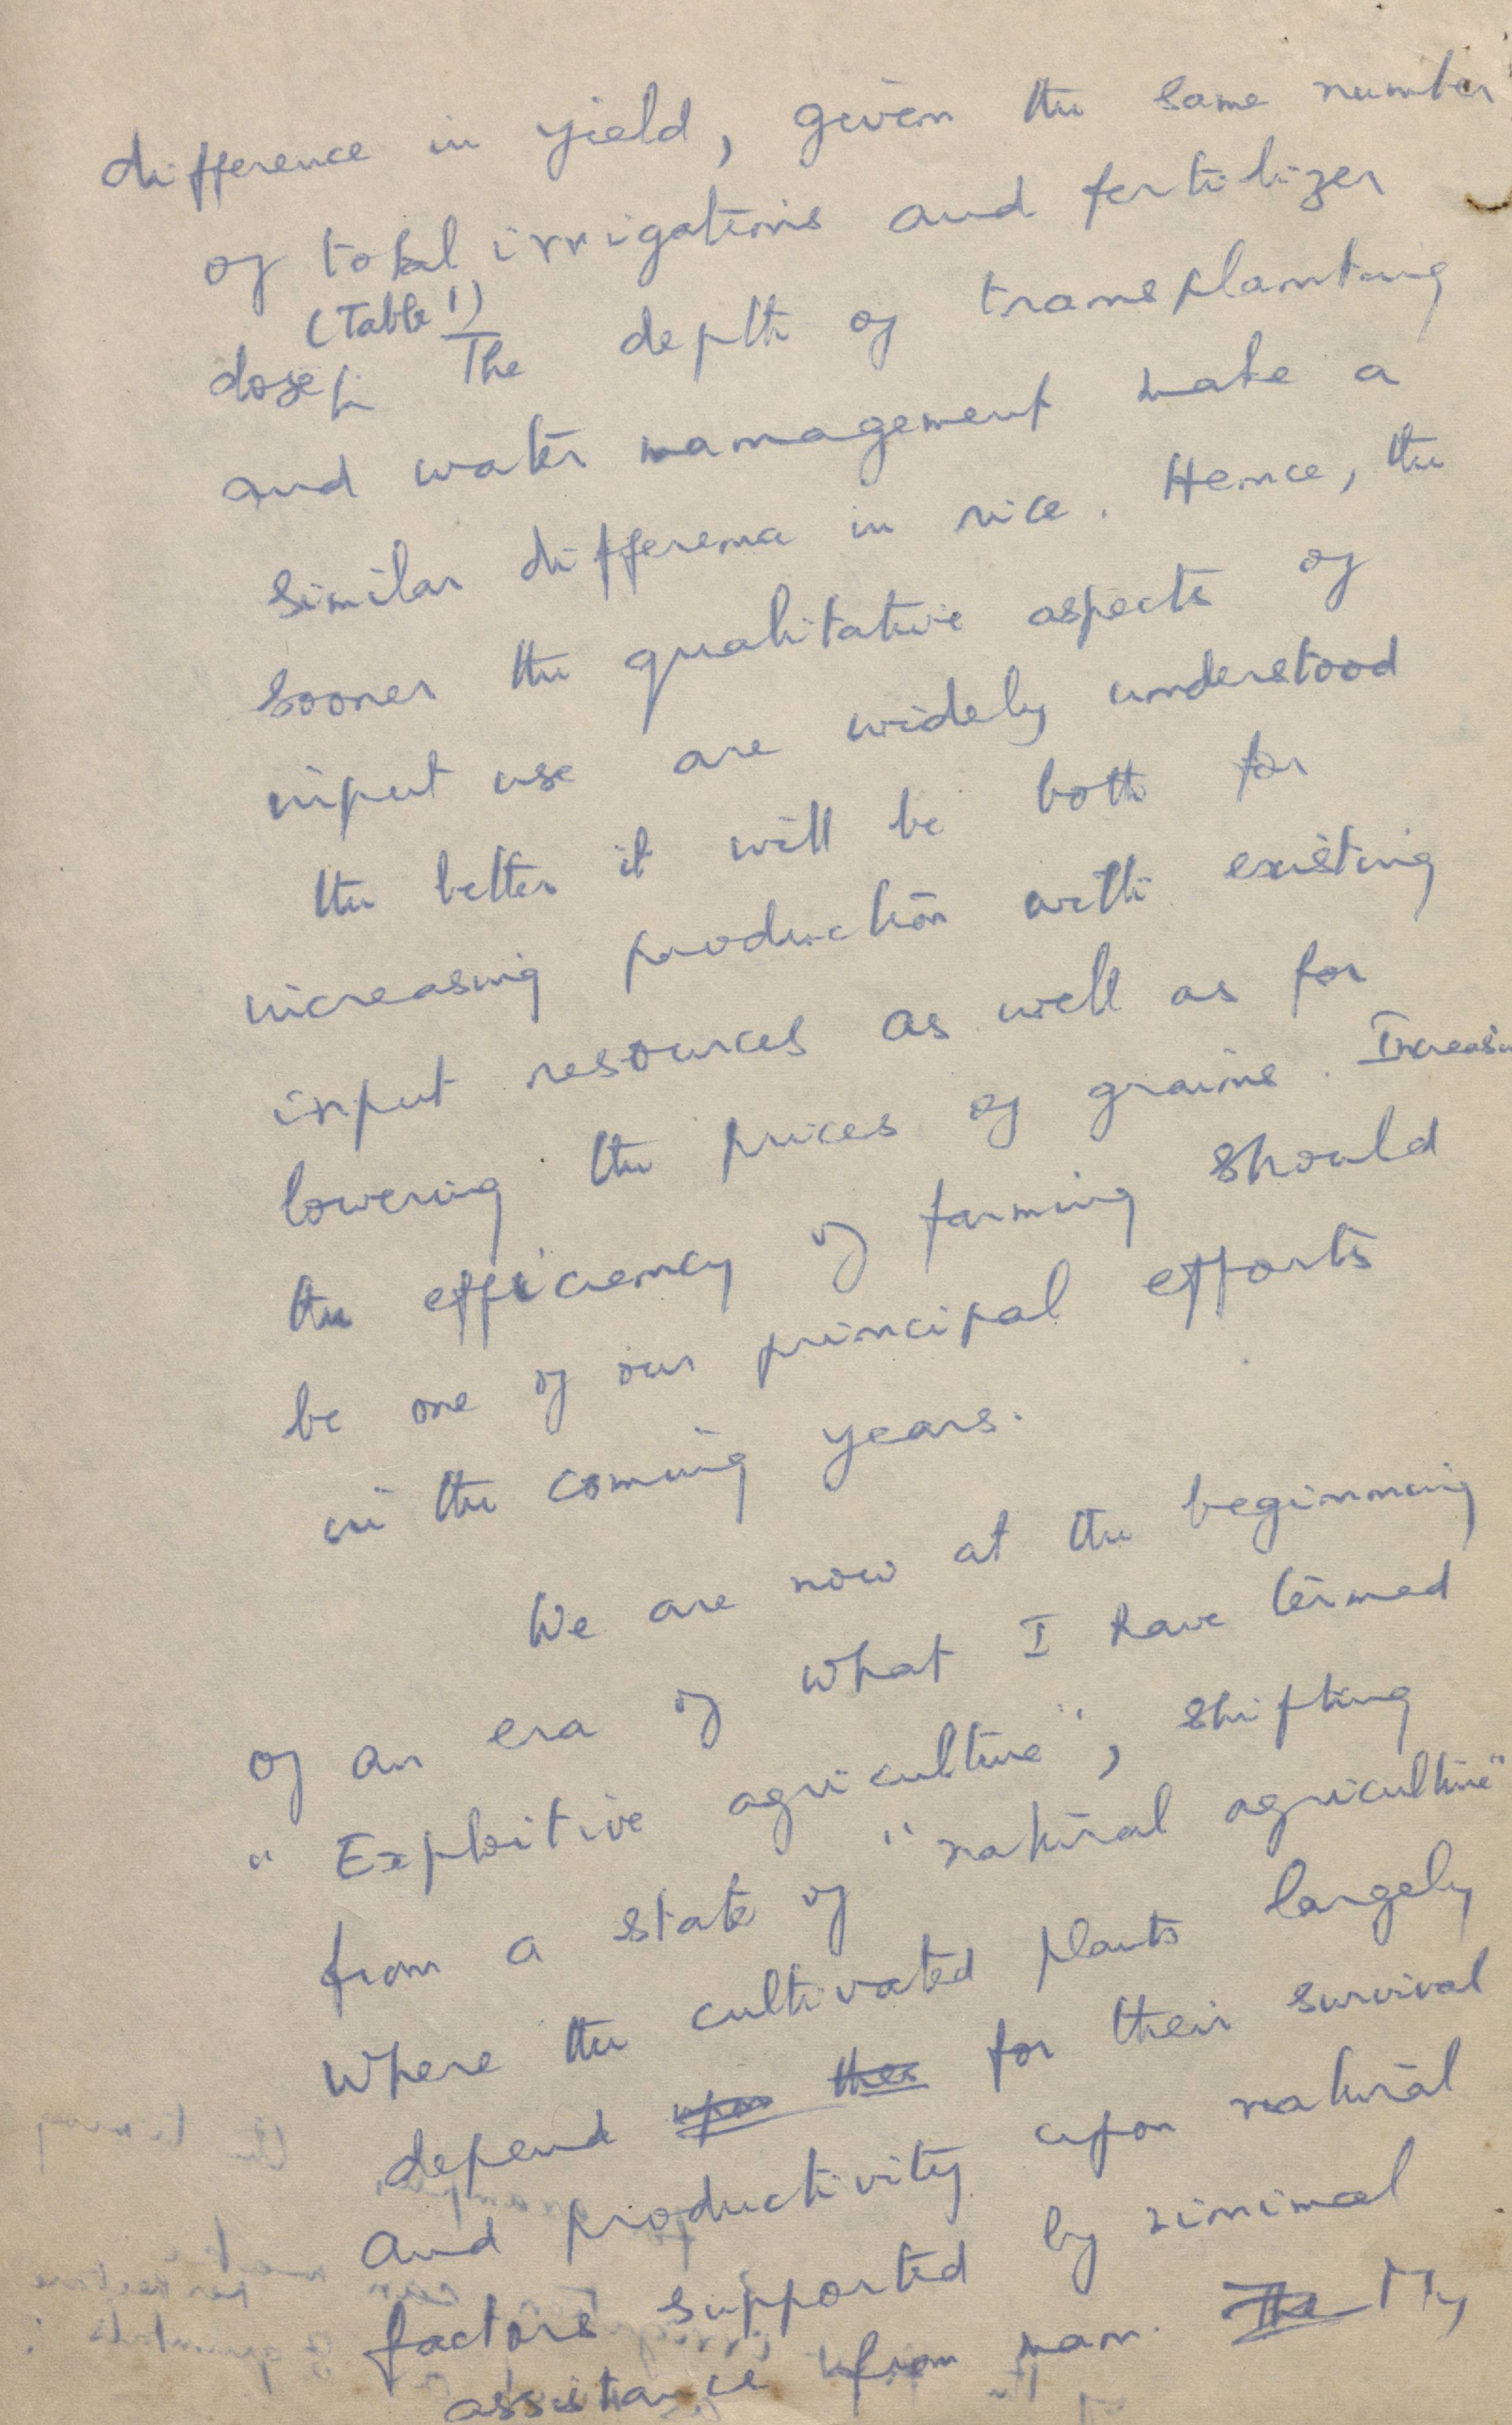 difference in yield, given the same number
of total irrigations and fertilizer
(Table 1)
dose. The depth of transplanting
and water management make a
similar difference in rice. Hence, the
sooner the qualitative aspects of
input use are widely understood
the better it will be both for
increasing production with existing
input resources as well as for
lowering the prices of grains. Increasing
the efficiency of farming should
be one of our principal efforts
in the coming years.
We are now at the beginning
of an era of what I have termed
"Exploitive agriculture", shifting
from a state of "natural agriculture"
where the cultivated plants largely
depend upon their for their survival
and productivity upon natural
factors supported by minimal
assistance from man. The My